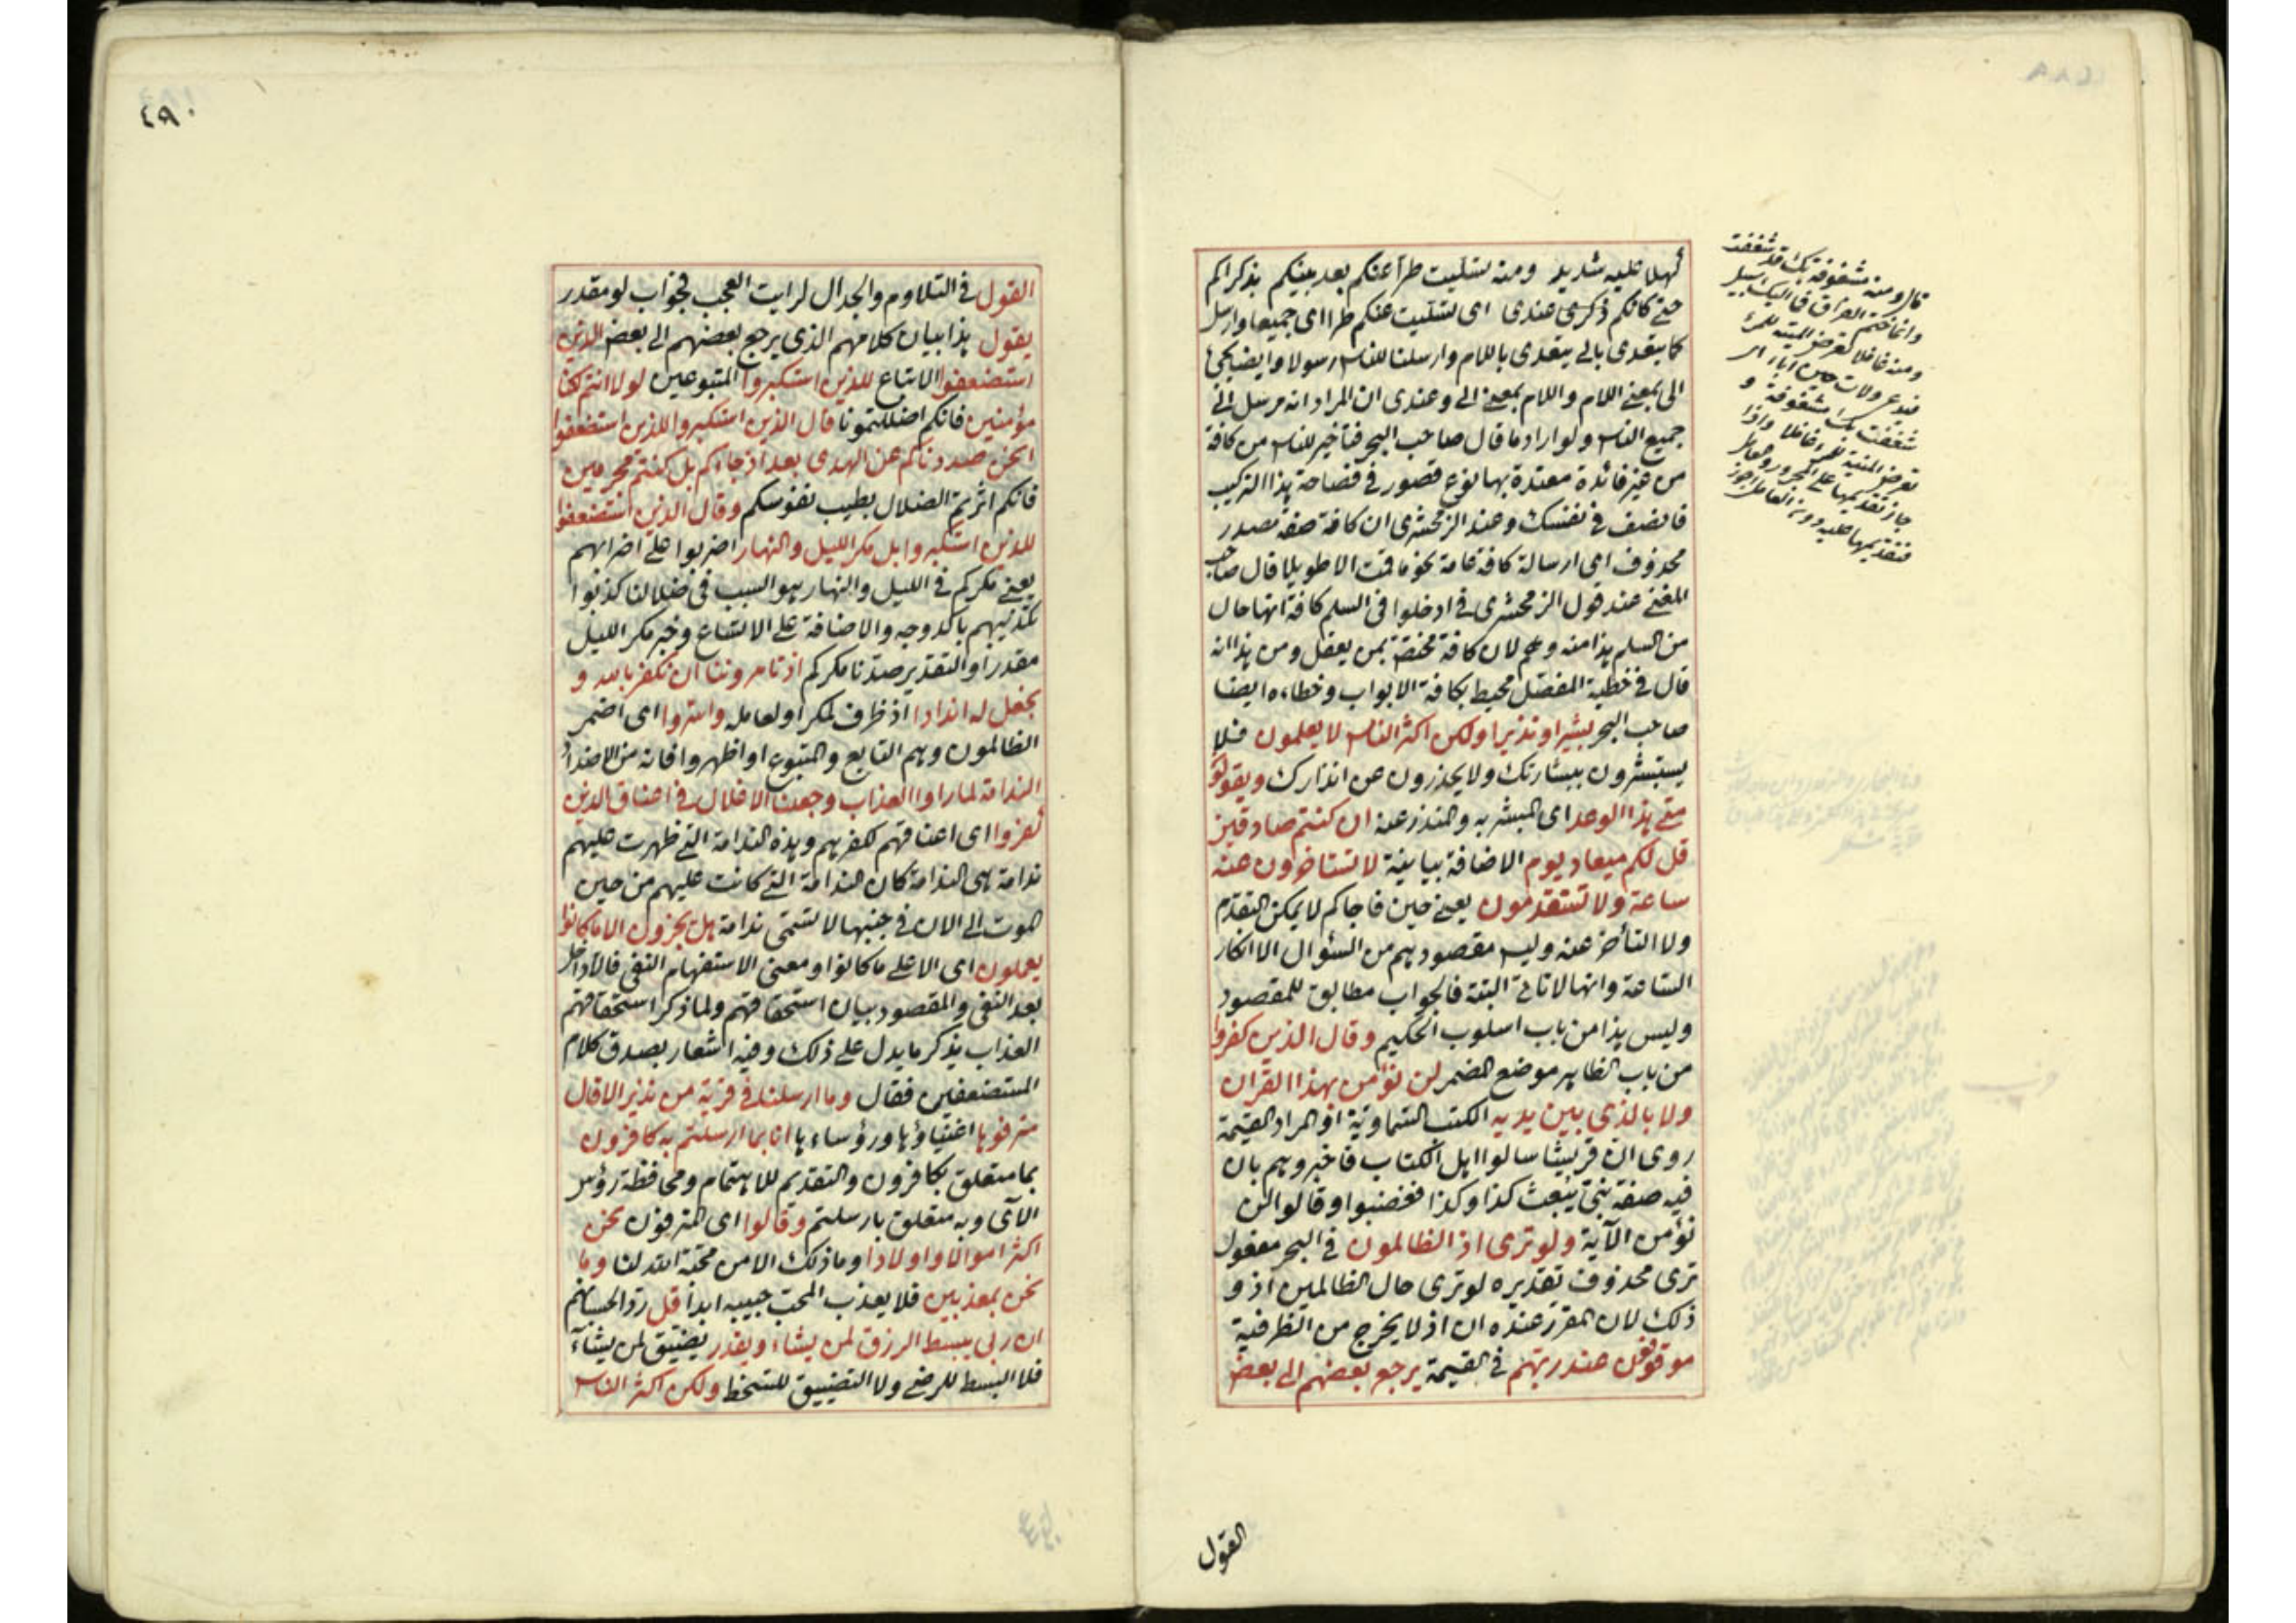 كهلا عليه شديد ومنه تسليت طرا عنكم بعد بينكم بذكراكم
حتى كانكم ذكرى عندى اى تسليت عنكم طرا اى جميعا وارسل
كما يتعدى بالى يتعدى باللام وارسلنا للناس رسولا وايضا يجئ
الى بمعنى اللام واللام بمعنى الى وعندى ان المراد انه مرسل الى
جميع الناس ولو اراد ما قال صاحب البحر فتاخير للناس من كافة
من غير فائدة معتدة بها نوع قصور فى فصاحة هذا التركيب
فانصف فى نفسك وعند الزمخشرى ان كافة صفة مصدر
محذوف اى ارسالة كافة عامة نحو ما قمت الا طويلا قال صاحب
المغنى عند قول الزمخشرى فى ادخلوا فى السلم كافة انها حال
من السلم هذا منه وهم لان كافة مختصة بمن يعقل ومن هذا انه
قال فى خطبة المفصل محيط بكافة الابواب وخطاءه ايضا
صاحب البحر بشيرا ونذيرا ولكن اكثر الناس لا يعلمون فلا
يستبشرون ببشارتك ولا يحذرون عن انذارك ويقولون
متى هذا الوعد اى المبشر به والمنذر عنه ان كنتم صادقين
قل لكم ميعاد يوم الاضافة بيانية لا تستاخرون عنه
ساعة ولا تستقدمون يعنى حين فاجاكم لا يمكن التقدم
ولا التأخر عنه وليس مقصودهم من السئوال الا انكار
الساعة وانها لا تاتى البتة فالجواب مطابق للمقصود
وليس هذا من باب اسلوب الحكيم وقال الذين كفروا
من باب الظاهر موضع المضمر لن نؤمن بهذا القران
ولا بالذى بين يديه الكتب السماوية او المراد القيمة
روى ان قريشا سالوا اهل الكتاب فاخبروهم بان
فيه صفة نبى يبعث كذا وكذا فغضبوا وقالوا لن
نؤمن الآية ولو ترى اذ الظالمون فى البحر مفعول
ترى محذوف تقديره لو ترى حال الظالمين اذ و
ذلك لان المقرر عنده ان اذ لا يخرج من الظرفية
موقوفون عند ربهم فى القيمة يرجع بعضهم الى بعض
القول
قال ومنه مشغوفة بك قد شغفت
وانما ختم الفراق فما اليك سبيل
ومنه غافلا تعرض المنية للمرء
فيدعى ولات حين اباء اى
شغفت بك مشغوفة و
تعرض المنية للمرء غافلا واذا
جاز تقديمها على المجرور والعامل
فتقديمها عليه دون العامل اجوز
٤٩٠
القول فى التلاوم والجدال لرايت العجب فجواب لو مقدر
يقول هذا بيان كلامهم الذى يرجع بعضهم الى بعض الذين
استضعفوا الاتباع للذين استكبروا المتبوعين لولا انتم لكنا
مؤمنين فانكم اضللتمونا قال الذين استكبروا للذين استضعفوا
انحن صددناكم عن الهدى بعد اذ جاءكم بل كنتم مجرمين
فانكم اثرتم الضلال بطيب نفوسكم وقال الذين استضعفوا
للذين استكبروا بل مكر الليل والنهار اضربوا على اضرابهم
يعنى مكركم فى الليل والنهار هو السبب فى ضلالنا كذبوا
تكذيبهم باكد وجه والاضافة على الاتساع وخبر مكر الليل
مقدر او التقدير صدنا مكركم اذ تامروننا ان نكفر بالله و
نجعل له اندادا اذ ظرف لمكر او لعامله واسروا اى اضمر
الظالمون وهم التابع والمتبوع او اظهروا فانه من الاضداد
الندامة لما راوا العذاب وجعلنا الاغلال فى اعناق الذين
كفروا اى اعناقهم لكفرهم وهذه الندامة التى ظهرت عليهم
ندامة هى الندامة كان الندامة التى كانت عليهم من حين
الموت الى الان فى جنبها لا تسمى ندامة هل يجزون الا ما كانوا
يعملون اى الا على ما كانوا ومعنى الاستفهام النفى فالا داخل
بعد النفى والمقصود بيان استحقاقهم ولما ذكر استحقاقهم
العذاب يذكر ما يدل على ذلك وفيه اشعار بصدق كلام
المستضعفين فقال وما ارسلنا فى قرية من نذير الا قال
مترفوها اغنياؤها ورؤساءها انا بما ارسلتم به كافرون
بما متعلق بكافرون والتقديم للاهتمام ومحافظة رؤس
الآى وبه متعلق بارسلتم وقالوا اى المترفون نحن
اكثر اموالا واولادا وما ذلك الا من محبة الله لنا وما
نحن بمعذبين فلا يعذب المحب حبيبه ابدا قل رد الحسبانهم
ان ربى يبسط الرزق لمن يشاء ويقدر يضيق لمن يشاء
فلا البسط للرضى ولا التضييق للسخط ولكن اكثر الناس